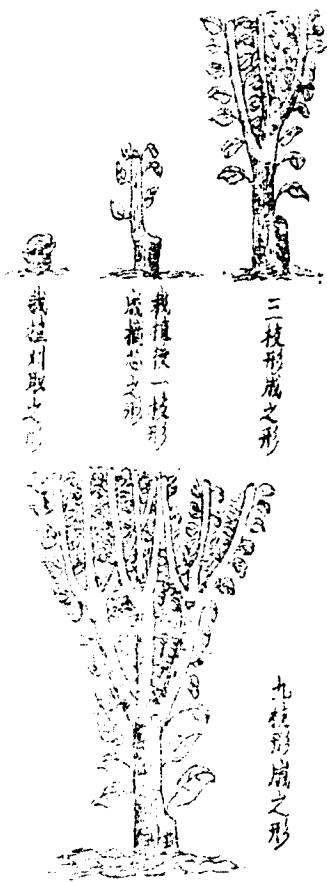 三枝形成之形
栽植後一枝形
成摘芯之形
栽植刈取之形
九枝形成之形